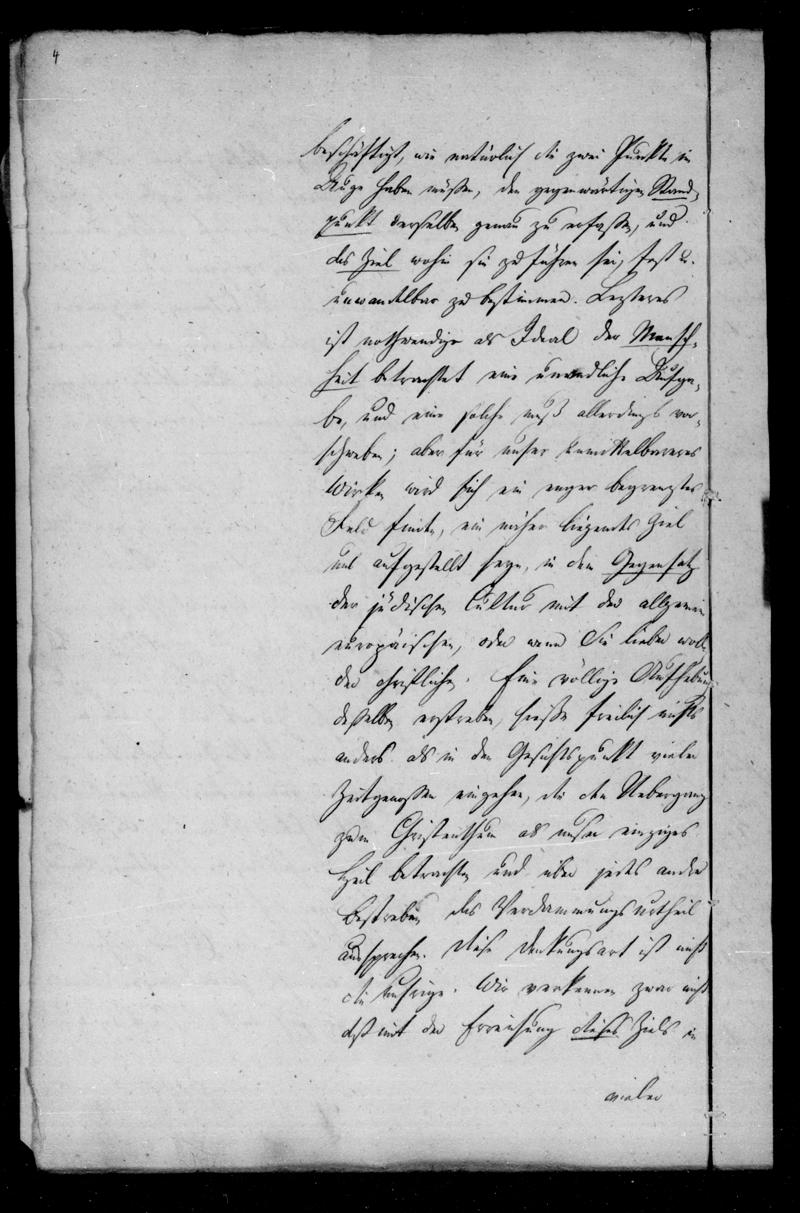 4
beschäftigt, wir natürlich die zwei Punkte im
Auge haben müßen, den gegenwärtigen Stand-
punkt derselben genau zu erfaßen, und
das Ziel wohin sie zu führen sei, fest u.
unwandelbar zu bestimmen. Lezteres
ist nothwendig als Ideal der Mensch-
heit betrachtet eine unendliche Aufga-
be, und eine solche muß allerdings vor-
schweben; aber für unser unmittelbareres
Wirken wird sich ein enger begrenztes
Feld finden, ein näher liegendes Ziel
uns aufgestellt seyn, in dem Gegensatz
der jüdischen Cultur mit der allgemein
europäischen, oder wenn Sie lieber woll
der christlichen. Eine völlige Aufhebung
deßelben erstreben, hieße freilich nichts
anders als in den Gesichtspunkt vieler
Zeitgenoßen eingehen, die den Uebergang
zum Christenthum als unser einziges
Heil betrachten und über jedes andre
Bestreben das Verdammungsurtheil
aussprechen. Diese Denkungsart ist nicht
die Unsrige. Wir verkennen zwar nicht
daß mit der Erreichung dieses Ziels in
vieler